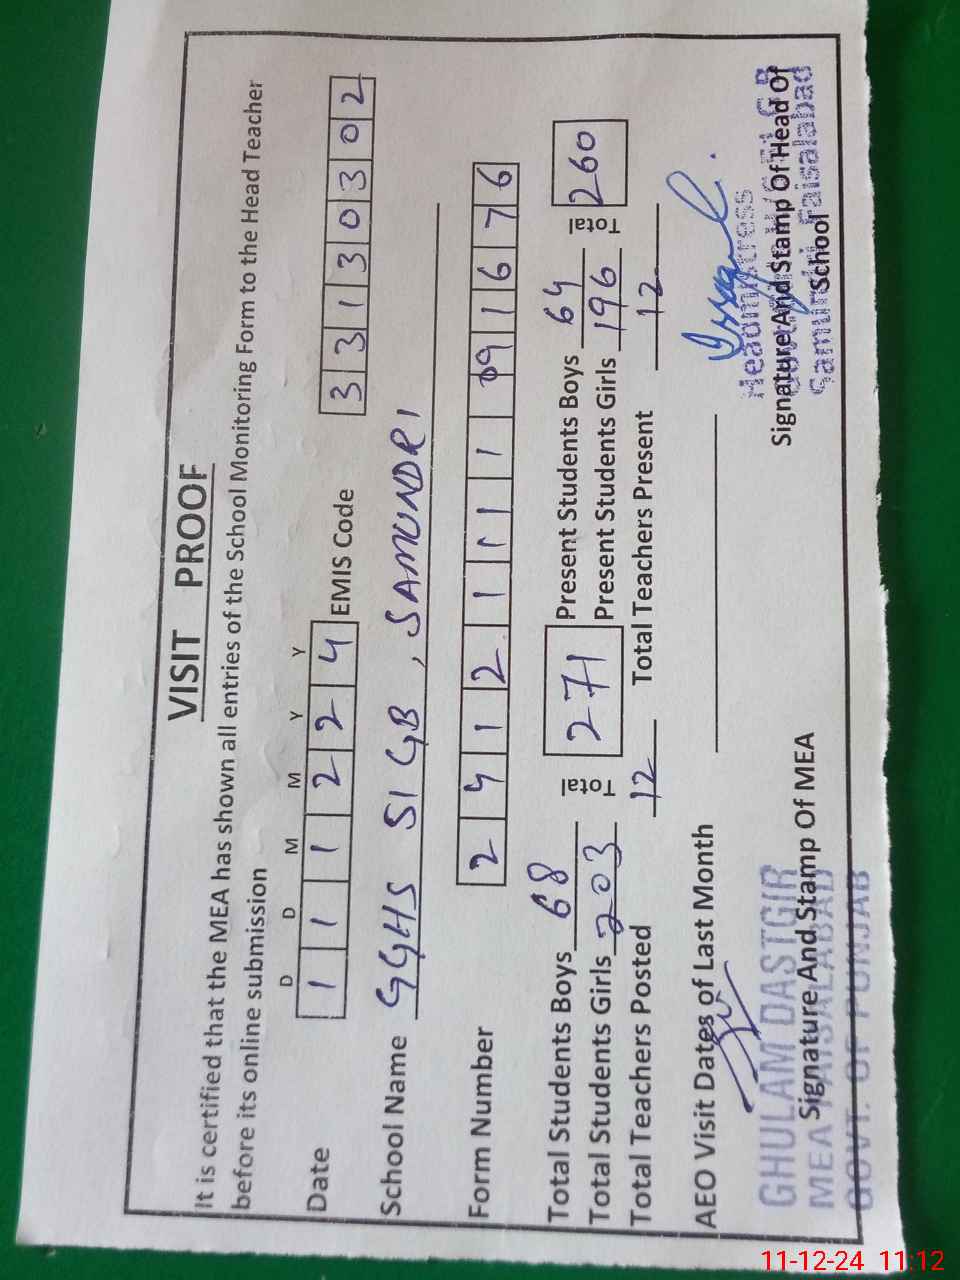 VISIT PROOF
It is certified that the MEA has shown all entries of the School Monitoring Form to the Head Teacher
before its online submission
D D M M Y Y
Date 1 1 1 2 2 4 EMIS Code 3 3 1 3 0 3 0 2
School Name GGHS SI GB, SAMUNDRI
Form Number 2 4 1 2 1 1 1 1 0 9 1 6 7 6
Total Students Boys 68 Total 271 Present Students Boys 64 Total 260
Total Students Girls 203 Present Students Girls 196
Total Teachers Posted 12 Total Teachers Present 12
AEO Visit Dates of Last Month
Signature And Stamp Of MEA
GHULAM DASTGIR
MEA FAISALABAD
GOVT. OF PUNJAB
Signature And Stamp Of Head Of
School
Headmistress
Samundri Faisalabad
11-12-24 11:12